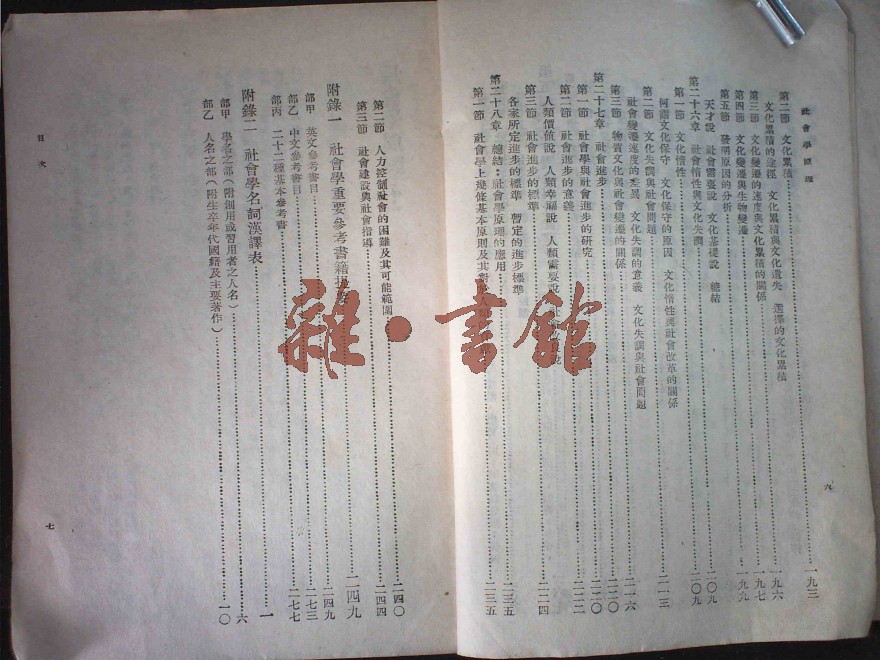 社會學原理
第二節 文化累積……一九三
文化累積的途徑 文化累積與文化遺失 選擇的文化累積
第三節 文化變遷的速度與文化累積的關係……一九六
第四節 文化變遷與生物變遷……一九七
第五節 發明原因的分析……一九九
天才說 社會需要說 文化基礎說 總結
第二十六章 社會惰性與文化失調……二〇九
第一節 文化惰性
何謂文化保守 文化保守的原因 文化惰性與社會改革的關係
第二節 文化失調與社會問題……二一三
社會變遷速度的差異 文化失調的意義 文化失調與社會問題
第三節 物質文化與社會變遷的關係……二一六
第二十七章 社會進步……二二〇
第一節 社會學與社會進步的研究……二二〇
第二節 社會進步的意義……二二二
人類價值說 人類幸福說 人類需要說
第三節 社會進步的標準……二二四
各家所定進步的標準 暫定的進步標準
第二十八章 總結：社會學原理的應用……二三五
第一節 社會學上幾條基本原則及其對於……二三五
六
第二節 人力控制社會的困難及其可能範圍……二四〇
第三節 社會建設與社會指導……二四四
附錄一 社會學重要參考書籍……二四九
部甲 英文參考書目……二四九
部乙 中文參考書目……二七三
部丙 二十二種基本參考書……二七七
附錄二 社會學名詞漢譯表……一
部甲 學名之部（附創用或習用者之人名）……六
部乙 人名之部（附生卒年代國籍及主要著作）……一〇
目次
七
雜·書館